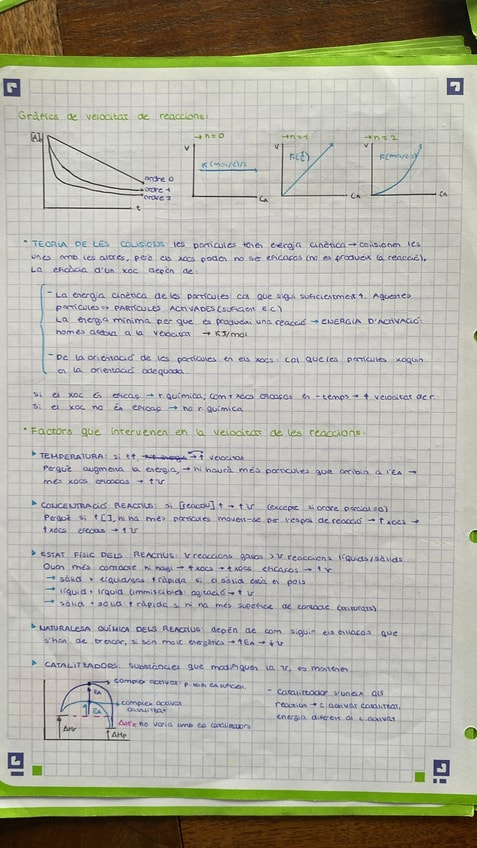 Gràfics de velocitat de reaccions:
[A]
ordre 0
ordre 1
ordre 2
t
→ n=0
V
CA
→ n=1
V
CA
→ n=2
V
CA
• TEORIA DE LES COLISIONS: les partícules tenen energia cinètica → colisionen les
unes amb les altres, però els xocs poden no ser eficaços (no es produeix la reacció).
La eficàcia d'un xoc depèn de:
- La energia cinètica de les partícules: cal que sigui suficientment ↑. Aquestes
partícules → PARTÍCULES ACTIVADES (suficient e.c)
La energia mínima per que es produeixi una reacció → ENERGIA D'ACTIVACIÓ:
només afecta a la velocitat → KJ/mol
- De la orientació de les partícules en els xocs: cal que les partícules xoquin
en la orientació adequada.
Si el xoc és eficaç → r. química; com + xocs eficaços en - temps → ↑ velocitat de r.
Si el xoc no és eficaç → no r. química
• Factors que intervenen en la velocitat de les reaccions:
▸ TEMPERATURA: si t↑, → ↑ velocitat
Perquè augmenta la energia, → hi haurà més partícules que arribin a l'EA →
més xocs eficaços → ↑V
▸ CONCENTRACIÓ REACTIUS: si [reactiu] ↑ → ↑V (excepte si ordre parcial=0)
Perquè si ↑[], hi ha més partícules movent-se per l'espai de reacció → ↑xocs →
↑xocs efectius → ↑V
▸ ESTAT FÍSIC DELS REACTIUS: V reaccions gasos > V reaccions líquids/sòlids
Quan més contacte hi hagi → ↑xocs → ↑xocs eficaços → ↑V
→ sòlid + líquid/gas: ↑ràpida si el sòlid està en pols
→ líquid + líquid (immiscibles): agitació → ↑V
→ sòlid + sòlid: ↑ràpida si hi ha més superfície de contacte (triturats)
▸ NATURALESA QUÍMICA DELS REACTIUS: depèn de com siguin els enllaços que
s'han de trencar, si són molt energètics → ↑EA → ↓V
▸ CATALITZADORS: substàncies que modifiquen la V, es mantenen
complex activat:
EA
complex activat
catalitzat
ΔHr no varia amb es catalitzadors
ΔHr
ΔHp
- Catalitzador s'uneix als
reactius → c. activat catalitzat,
energia diferent al c. activat